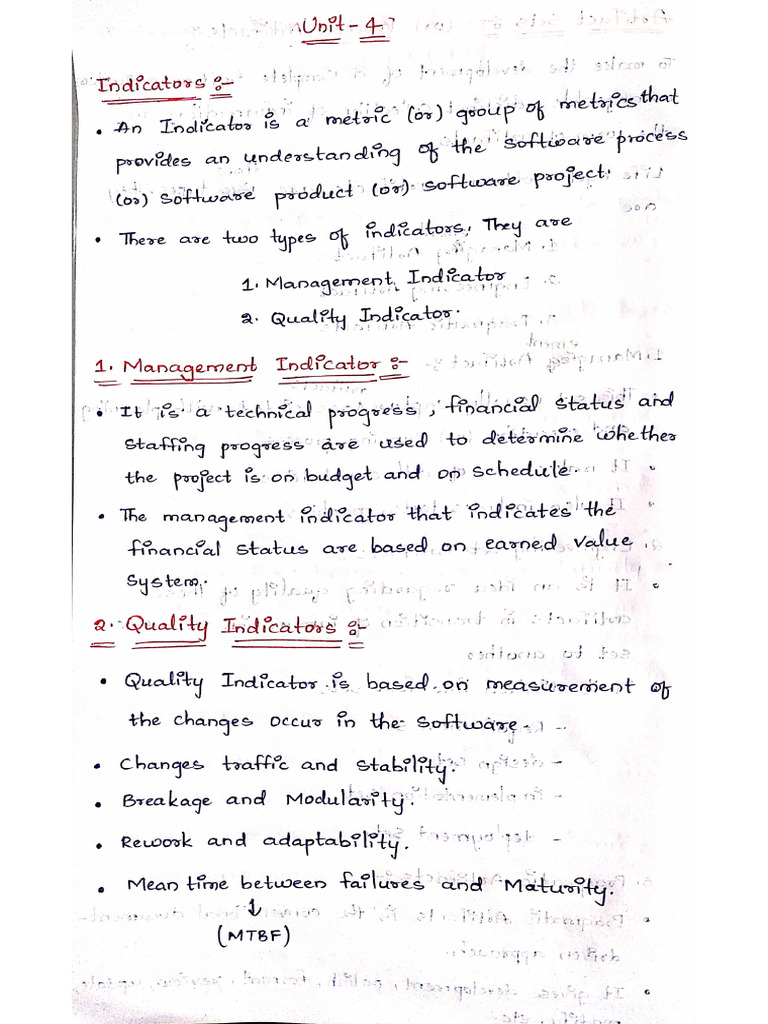 Unit - 4
Indicators :-
• An Indicator is a metric (or) group of metrics that
provides an understanding of the software process
(or) software product (or) software project.
• There are two types of indicators. They are
1. Management Indicator
2. Quality Indicator.
1. Management Indicator :-
• It is a technical progress, financial status and
staffing progress are used to determine whether
the project is on budget and on schedule.
• The management indicator that indicates the
financial status are based on earned value
system.
2. Quality Indicators :-
• Quality Indicator is based on measurement of
the changes occur in the software.
• Changes traffic and stability.
• Breakage and Modularity.
• Rework and adaptability.
• Mean time between failures and Maturity.
↓
(MTBF)